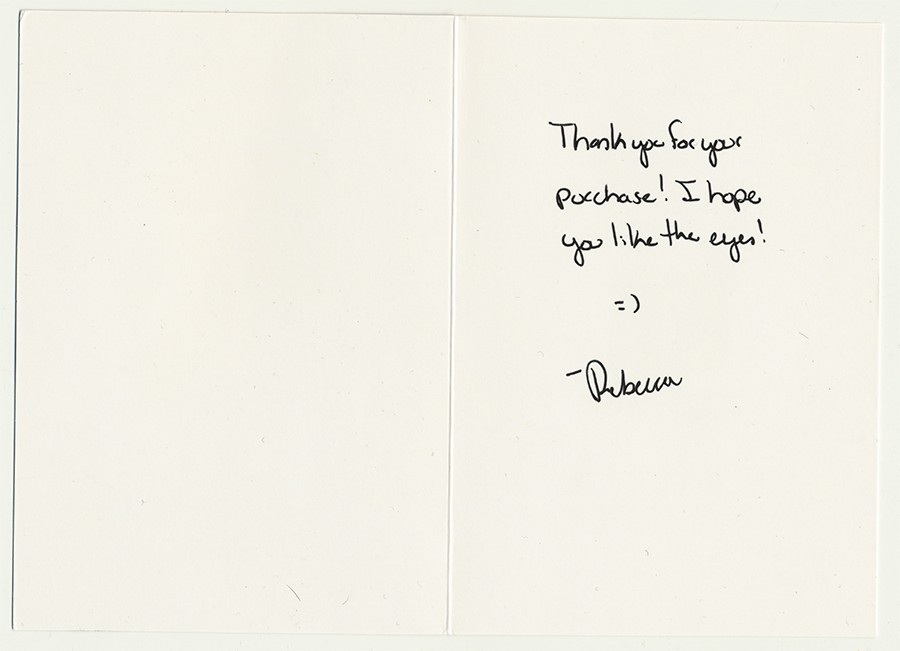 Thank you for your
purchase! I hope
you like the eyes!
=)
-Rebecca